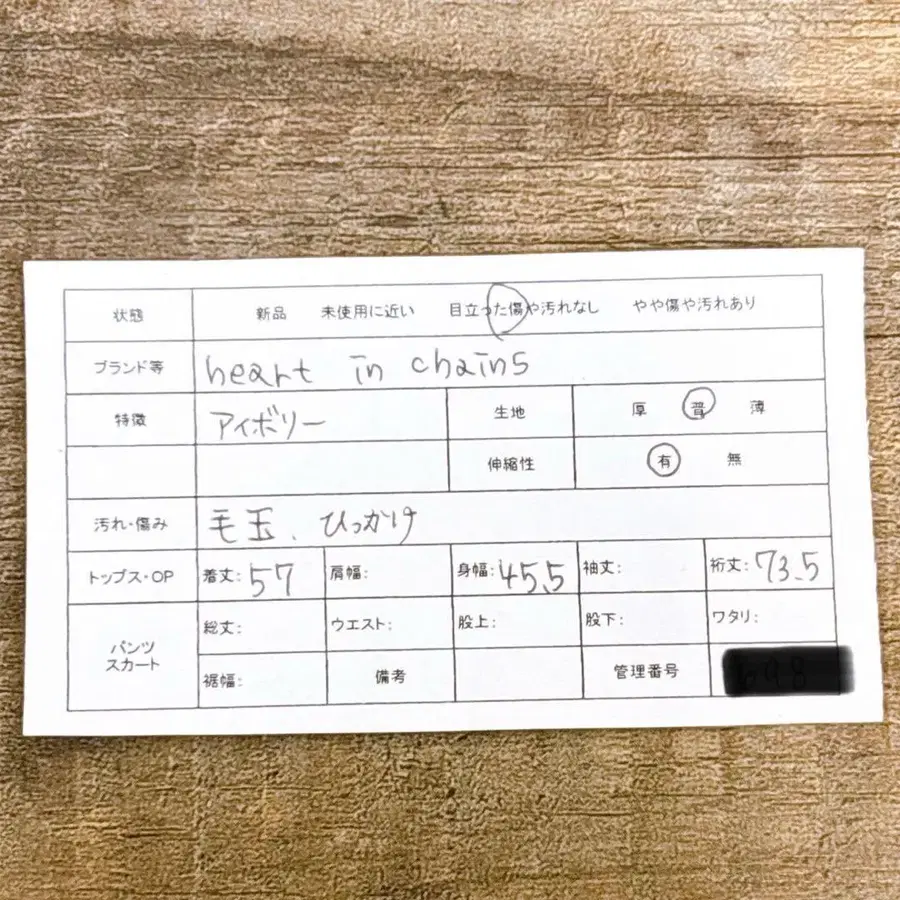 状態 新品 未使用に近い 目立った傷や汚れなし やや傷や汚れあり
ブランド等 heart in chains
特徴 アイボリー 生地 厚 普 薄
伸縮性 有 無
汚れ・傷み 毛玉、ひっかけ
トップス・OP 着丈: 57 肩幅: 身幅: 45.5 袖丈: 裄丈: 73.5
パンツ スカート 総丈: ウエスト: 股上: 股下: ワタリ:
裾幅: 備考 管理番号